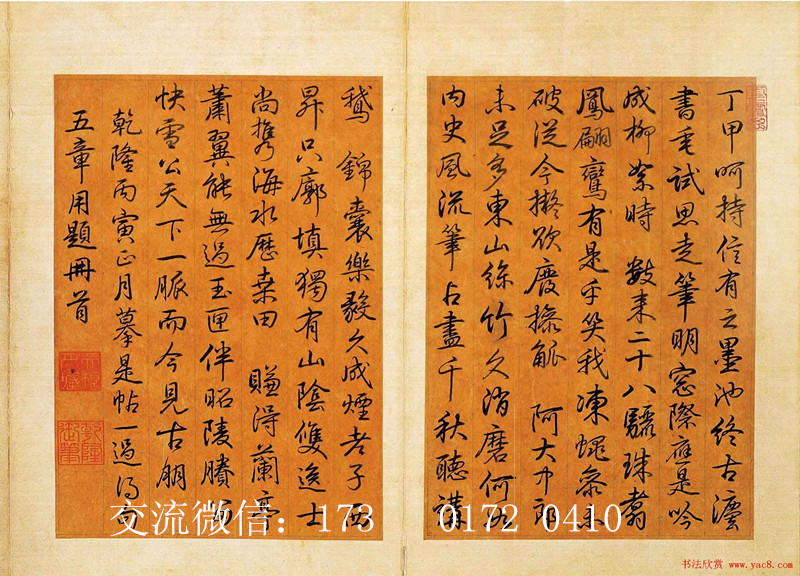 丁甲呵持信有之墨池終古
書垂試思走筆明窗際應是吟
成柳絮時 數來二十八驪珠翥
鳳翩鸞有是乎笑我凍蠅參未
破從今擬欲廢操觚 阿大中郎
未足多東山絲竹久消磨何如
内史風流筆占盡千秋聽講
鵝 錦囊樂毅久成煙老子西
昇只廓填獨有山陰雙逸士
尚攜海水歷桑田 賺得蘭亭
蕭翼能無過玉匣伴昭陵賸留
快雪公天下一脈而今見古朋
乾隆丙寅正月摹是帖一過得句
五章用題冊首
乾隆御筆
交流微信：173 0172 0410
书法欣赏 www.yac8.com